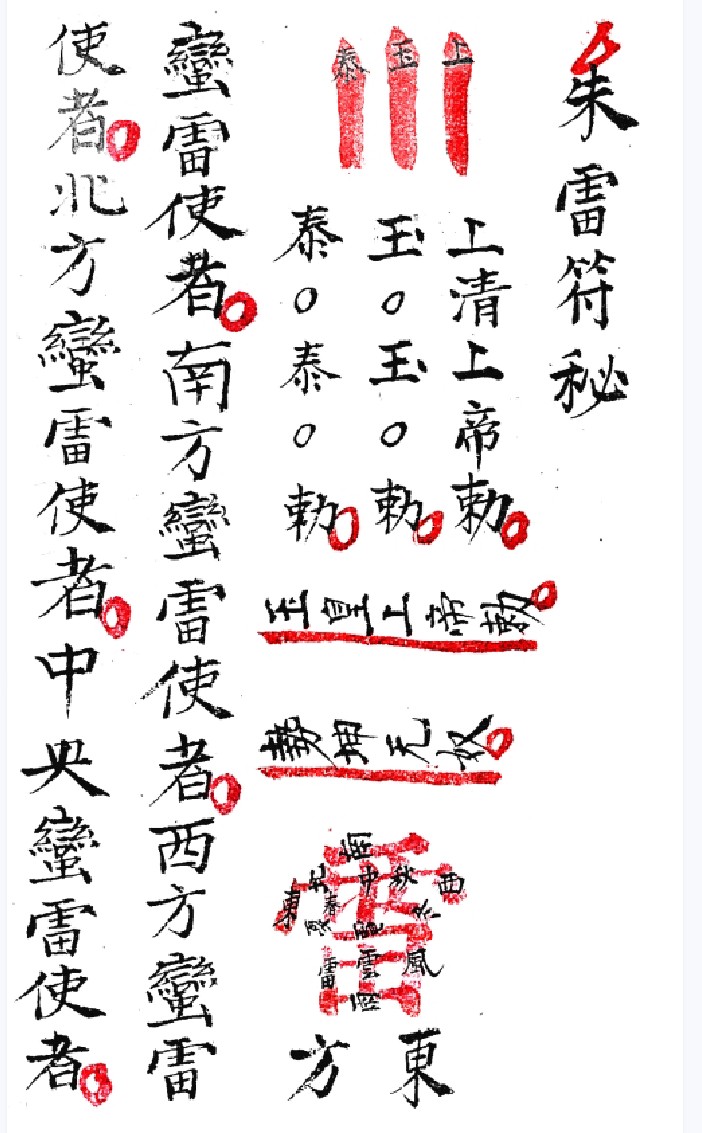 朱雷符秘
上
玉
泰
上清上帝勅
玉○玉○勅
泰○泰○勅
玉皇上帝勅
東 西 中 秋 春 風 雲 雷
東方
蠻雷使者南方蠻雷使者西方蠻雷
使者北方蠻雷使者中央蠻雷使者